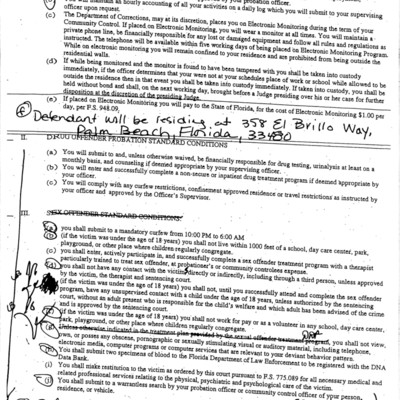 maintain an hourly accounting of all your activities on a daily log which you will submit to your supervising
officer upon request.
(c) The Department of Corrections, may at its discretion, places you on Electronic Monitoring during the term of your
Community Control. If placed on Electronic Monitoring, you will wear a monitor at all times. You will maintain a
private phone line, be financially responsible for any lost or damaged equipment and follow all rules and regulations as
instructed. The telephone will be available within five working days of being placed on Electronic Monitoring Program.
While on electronic monitoring you will remain confined to your residence and are prohibited from being outside the
residential walls.
(d) If while being monitored and the monitor is found to have been tampered with you shall be taken into custody
immediately, if the officer determines that your were not at your schedule place of work or school while allowed to be
outside the residence then in that event you shall be taken into custody immediately. If taken into custody, you shall be
held without bond and shall, on the next working day, brought before a Judge presiding over his or her case for further
disposition at the discretion of the presiding Judge.
(e) If placed on Electronic Monitoring you will pay to the State of Florida, for the cost of Electronic Monitoring $1.00 per
day, per F.S. 948.09.
(f) Defendant will be residing at 358 El Brillo Way,
Palm Beach, Florida, 33480
II. DRUG OFFENDER PROBATION STANDARD CONDITIONS
(a) You will submit to and, unless otherwise waived, be financially responsible for drug testing, urinalysis at least on a
monthly basis, and counseling if deemed appropriate by your supervising officer.
(b) You will enter and successfully complete a non-secure or inpatient drug treatment program if deemed appropriate by
your officer.
(c) You will comply with any curfew restrictions, confinement approved residence or travel restrictions as instructed by
your officer and approved by the Officer's Supervisor.
III. SEX OFFENDER STANDARD CONDITIONS:
(a) you shall submit to a mandatory curfew from 10:00 PM to 6:00 AM
(b) (if the victim was under the age of 18 years) you shall not live within 1000 feet of a school, day care center, park,
playground, or other place where children regularly congregate.
(c) you shall enter, actively participate in, and successfully complete a sex offender treatment program with a therapist
particularly trained to treat sex offender, at probationer's or community controlees expense.
(d) you shall not have any contact with the victim, directly or indirectly, including through a third person, unless approved
by the victim, the therapist and sentencing court.
(if the victim was under the age of 18 years) you shall not, until you successfully attend and complete the sex offender
program, have any unsupervised contact with a child under the age of 18 years, unless authorized by the sentencing
court, without an adult present who is responsible for the child's welfare and which adult has been advised of the crime
and is approved by the sentencing court.
(if the victim was under the age of 18 years) you shall not work for pay or as a volunteer in any school, day care center,
park, playground, or other place where children regularly congregate.
(g) Unless otherwise indicated in the treatment plan provided by the sexual offender treatment program, you shall not view,
own, or posses any obscene, pornographic or sexually stimulating visual or auditory material, including telephone,
electronic media, computer programs or computer services that are relevant to your deviant behavior pattern.
(h) You shall submit two specimens of blood to the Florida Department of Law Enforcement to be registered with the DNA
Data Bank.
(i) You shall make restitution to the victim as ordered by this court pursuant to F.S. 775.089 for all necessary medical and
related professional services relating to the physical, psychiatric and psychological care of the victim.
(j) You shall submit to a warrantless search by your probation officer or community control officer of your person,
residence, or vehicle.